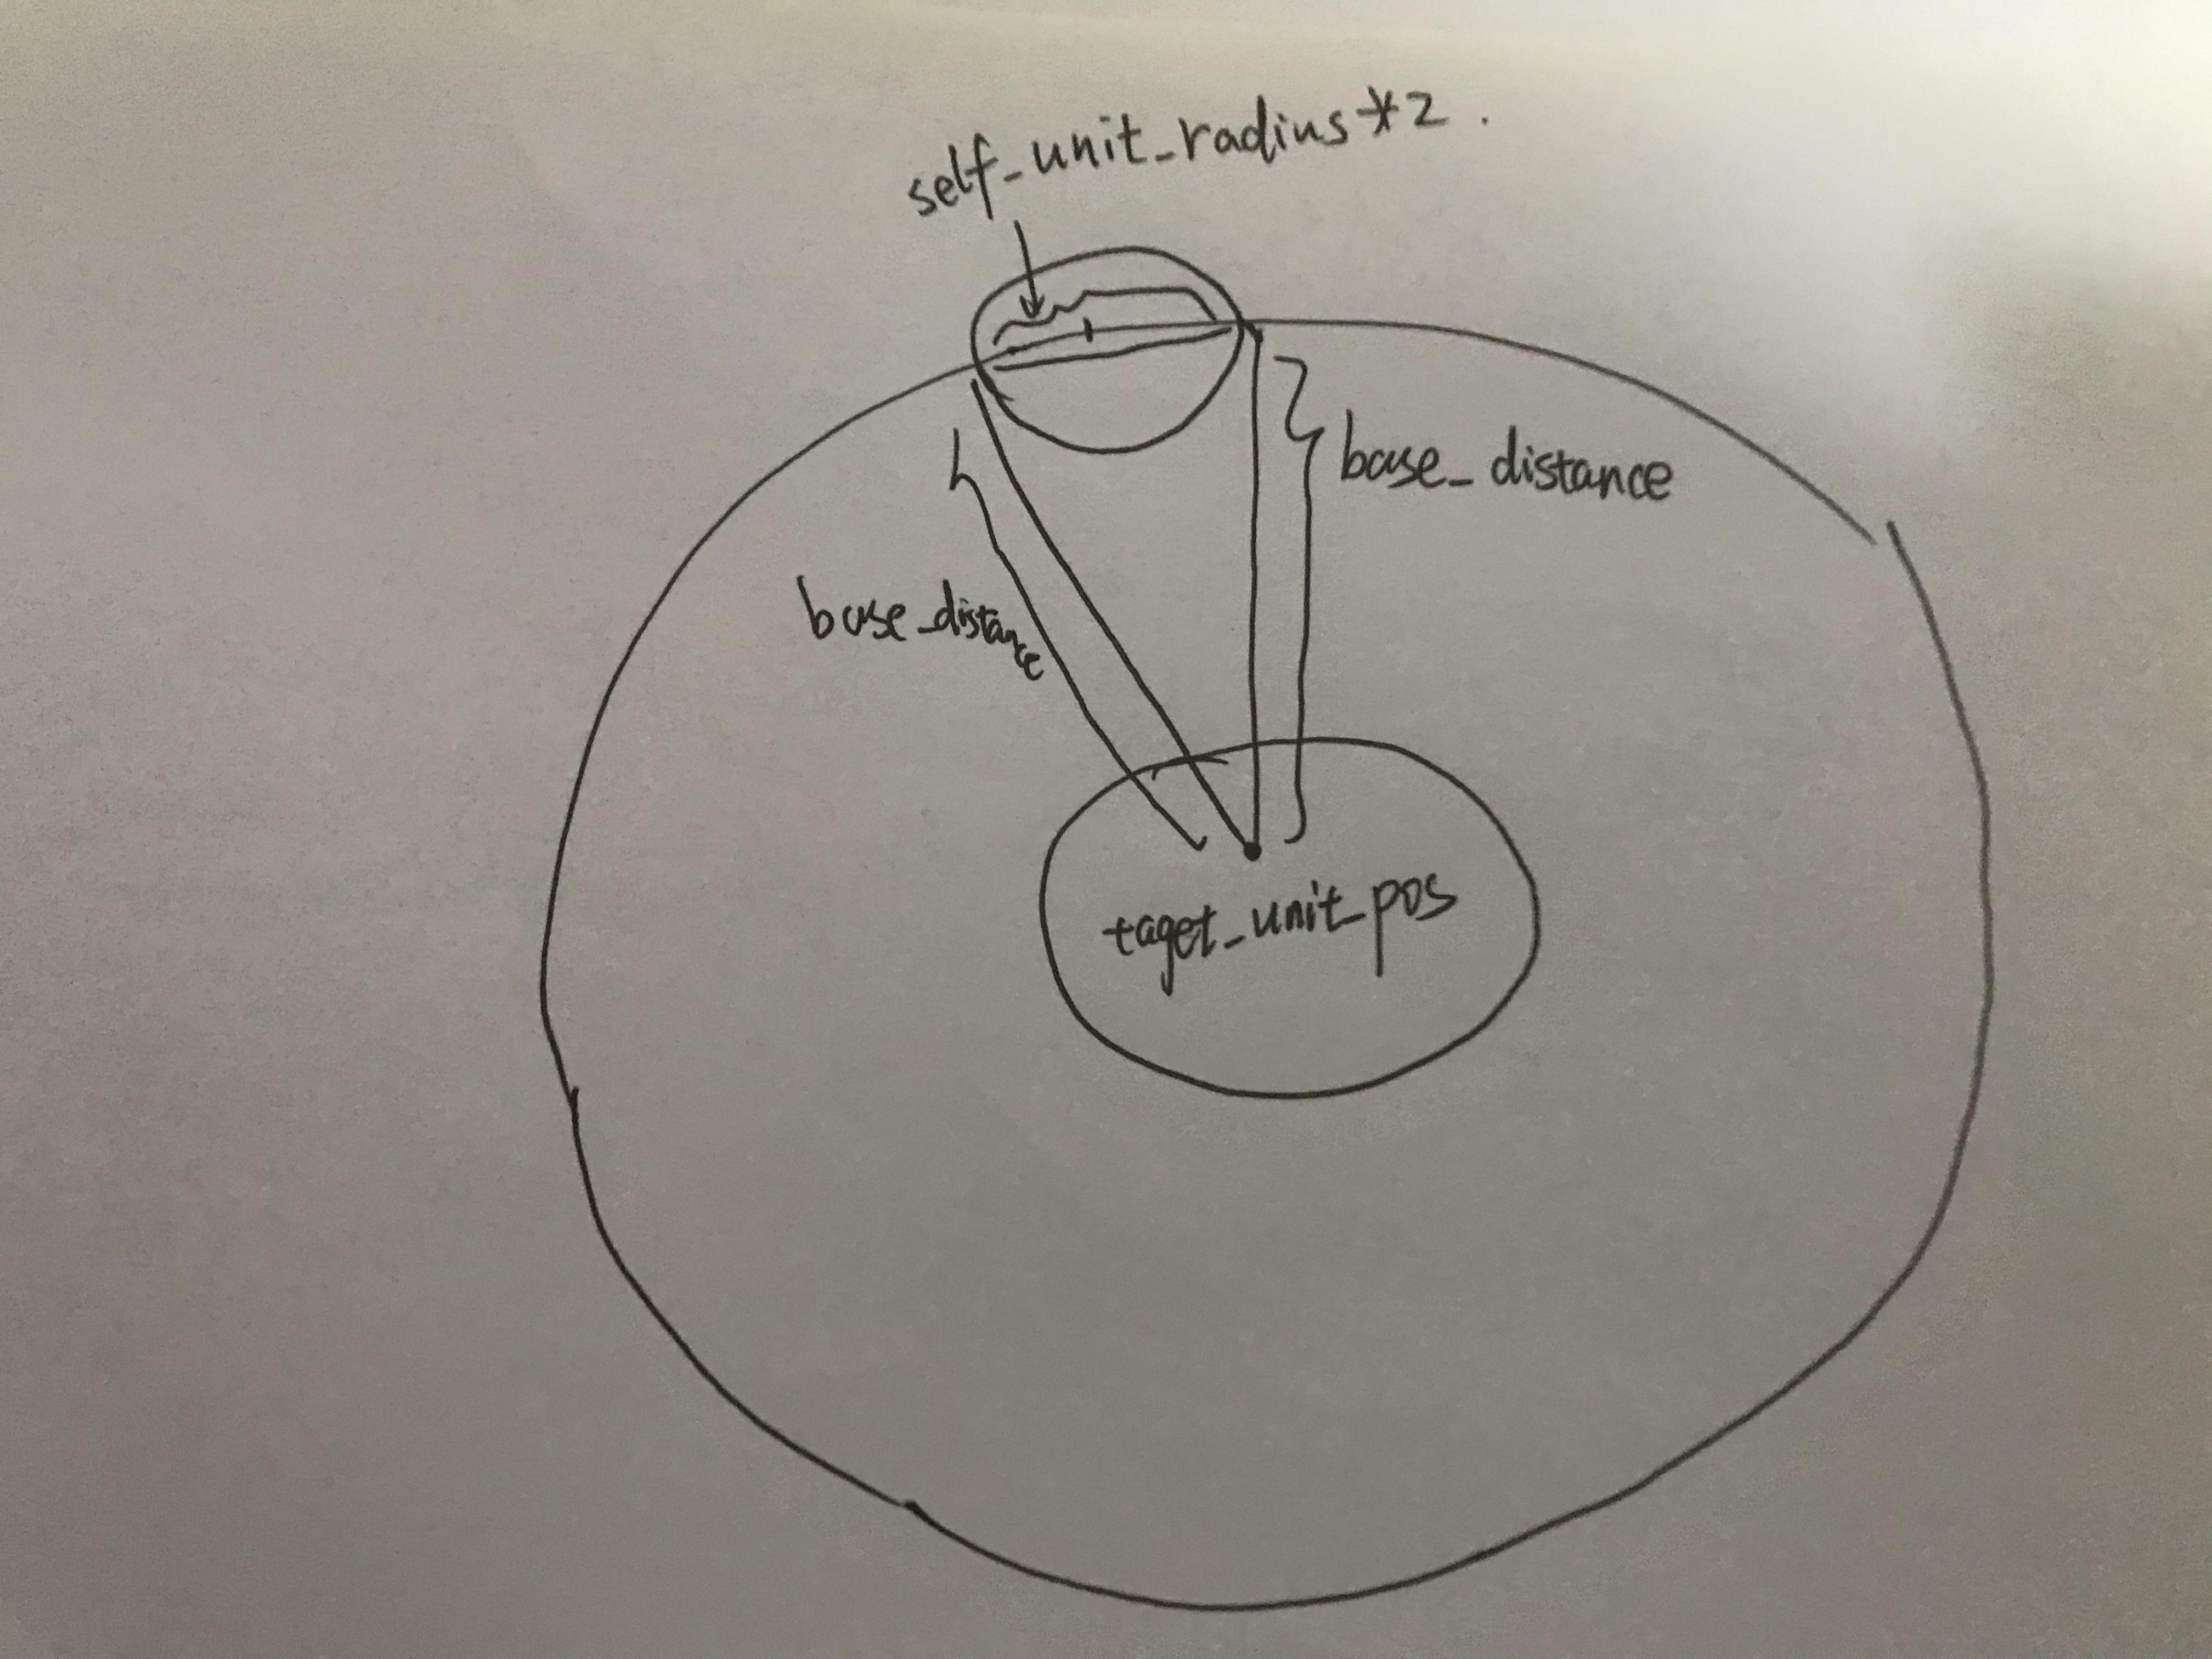 self_unit_radius*2.
base_distance
base_distance
taget_unit_pos